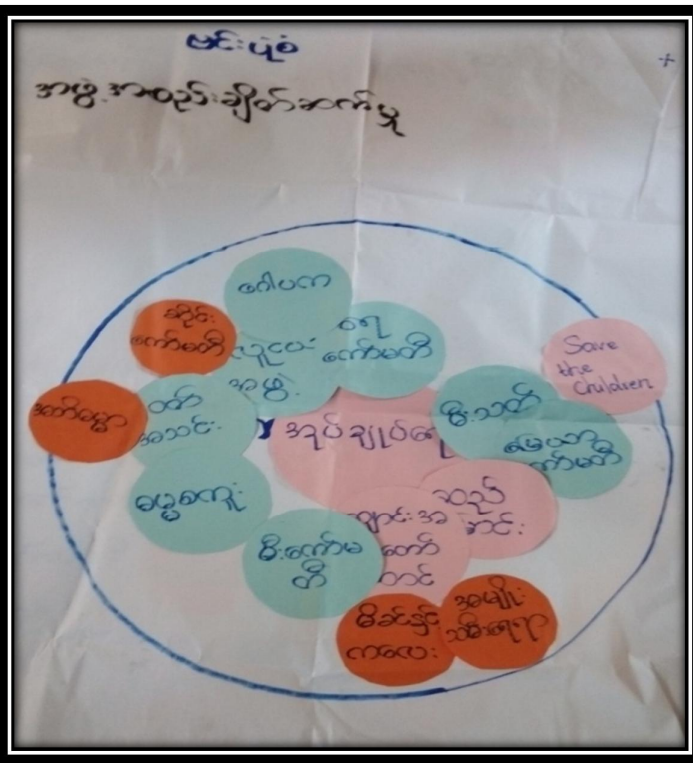 ဗင်းပုံစံ
အဖွဲ့အစည်းချိတ်ဆက်မှု
ဂေါပက
ဆိုင်း
ကော်မတီ
လူငယ်
အဖွဲ့
ရေ
ကော်မတီ
Save
the
Children
ဝတ်
အသင်း
အုပ်ချုပ်ရေး
မီးသတ်
မြေယာ
ကော်မတီ
ဓမ္မစကူး
ဆည်
မြောင်း
မီးကော်မ
တီ
မိခင်နှင့်
ကလေး
အမျိုး
သမီးရေးရာ